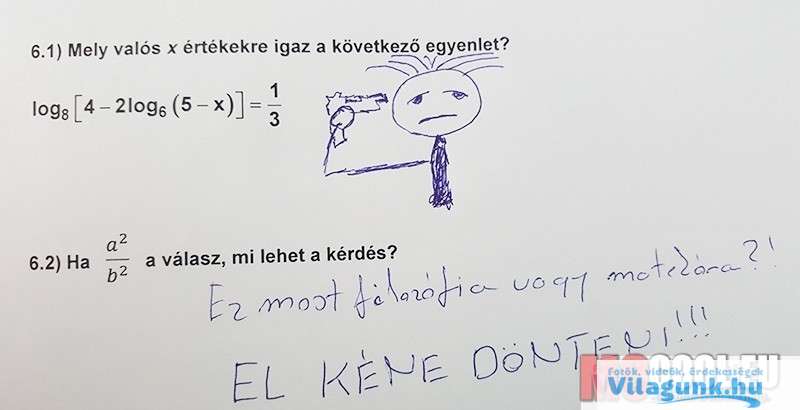 6.1) Mely valós x értékekre igaz a következő egyenlet?
log₈[4 − 2log₆(5 − x)] = 1/3
6.2) Ha a²/b² a válasz, mi lehet a kérdés?
Ez most filozófia vagy matekóra?!
EL KÉNE DÖNTENI!!!
fotók, videók, érdekességek
Vilagunk.hu